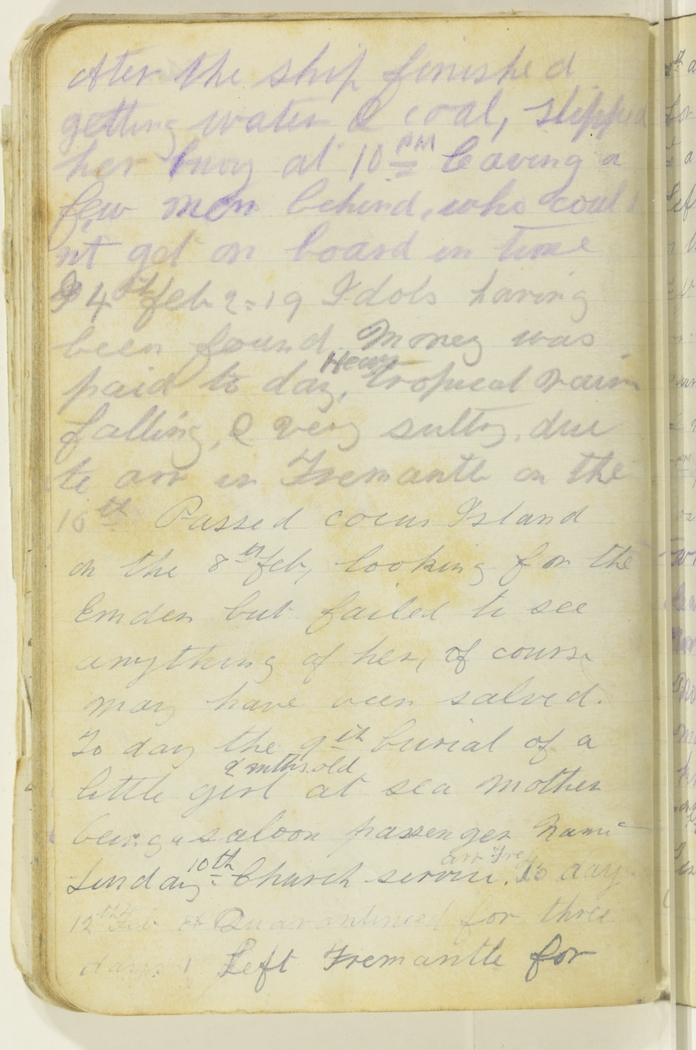 After the ship finished
getting water & coal, slipped
her buoy at 10 PM leaving a
few men behind, who could
nt get on board in time
4th Feb 2=19 Idols having
been found. Money was
paid to day, Heavy tropical rain
falling, & very sultry, due
to arr in Fremantle on the
10th Passed cocus Island
on the 8th Feb, looking for the
Emden but failed to see
anything of her, of course
may have been salved.
To day the 9th burial of a
little girl 2 mths old at sea mother
being a saloon passenger
Sunday 10th Church service. arr Fre To day
12th Feb Quarantined for three
days Left Fremantle for